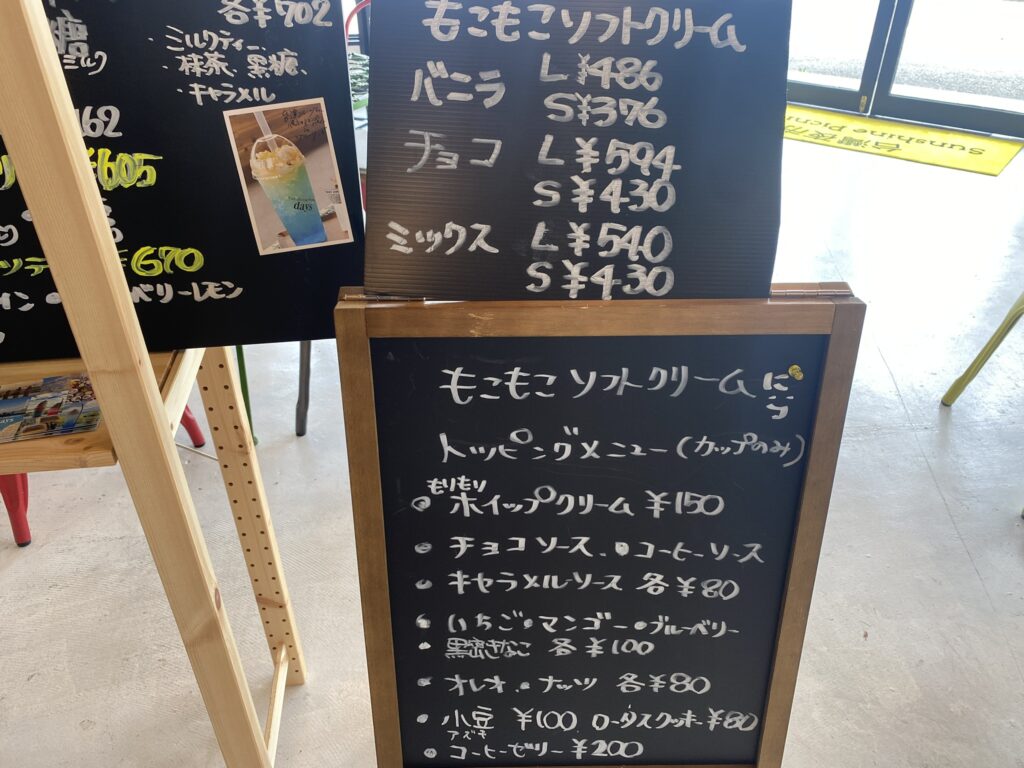 各¥702
・ミルクティー、
・抹茶、黒糖、
・キャラメル
糖
162
¥605
¥670
ベリーレモン
days
もこもこソフトクリーム
バニラ L ¥486
S ¥376
チョコ L ¥594
S ¥430
ミックス L ¥540
S ¥430
Sunshine Picnic
もこもこソフトクリーム
トッピングメニュー(カップのみ)
もりもり
●ホイップクリーム ¥150
●チョコソース、●コーヒーソース
●キャラメルソース 各¥80
●いちご●マンゴー●ブルーベリー
●黒糖きなこ 各¥100
●オレオ、●ナッツ 各¥80
●小豆 ¥100 ロータスクッキー¥80
アズキ
●コーヒーゼリー¥200